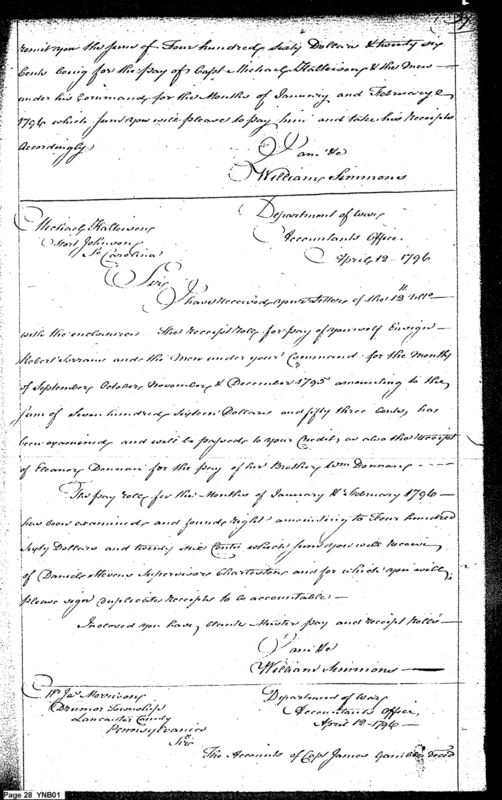 remit you the sum of Four hundred, sixty Dollars & twenty six
Cents being for the pay of Capt Michael Kalteisen & the men
under his Command for the Months of January and February
1796 which sum you will please to pay him and take his Receipts
Accordingly.
I am &c
William Simmons
Michael Kalteisen
Fort Johnson
So Carolina
Department of War
Accountants Office.
April 12 - 1796
Sir
I have received your Letter of the 12th ulto
with the enclosures. the receipt roll for pay of yourself Ensign
Robert and the men under your Command for the months
of September, October, November, & December 1795 amounting to the
sum of Seven hundred, Sixteen Dollars and fifty three Cents, has
been examined and will be passed to your Credit, as also the receipt
of Eleanor Donnan for the pay of her Brother Wm Donnan
The pay roll for the Months of January & February 1796
has been examined and found right amounting to Four hundred
Sixty Dollars and twenty six Cents which sum you will receive
of Daniel Stevens Supervisor Charleston, and for which you will
please sign duplicate receipts to be accountable
Inclosed you have blank Muster pay and receipt rolls
I am &c
William Simmons
Mr Jas Morrison
Drumor Township
Lancaster County
Pennsylvania
Sir
Department of War
Accountants Office,
April 12 - 1796
The Accounts of Capt James decd
Page 28 YNB01